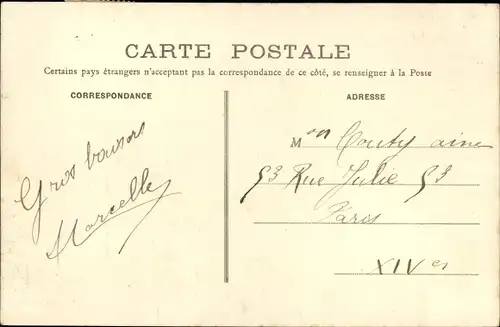 CARTE POSTALE
Certains pays étrangers n'acceptant pas la correspondance de ce côté, se renseigner à la Poste
CORRESPONDANCE
ADRESSE
Gros baisers
Marcelle
Mon Couty ainé
53 Rue Julie 53
Paris
XIVer